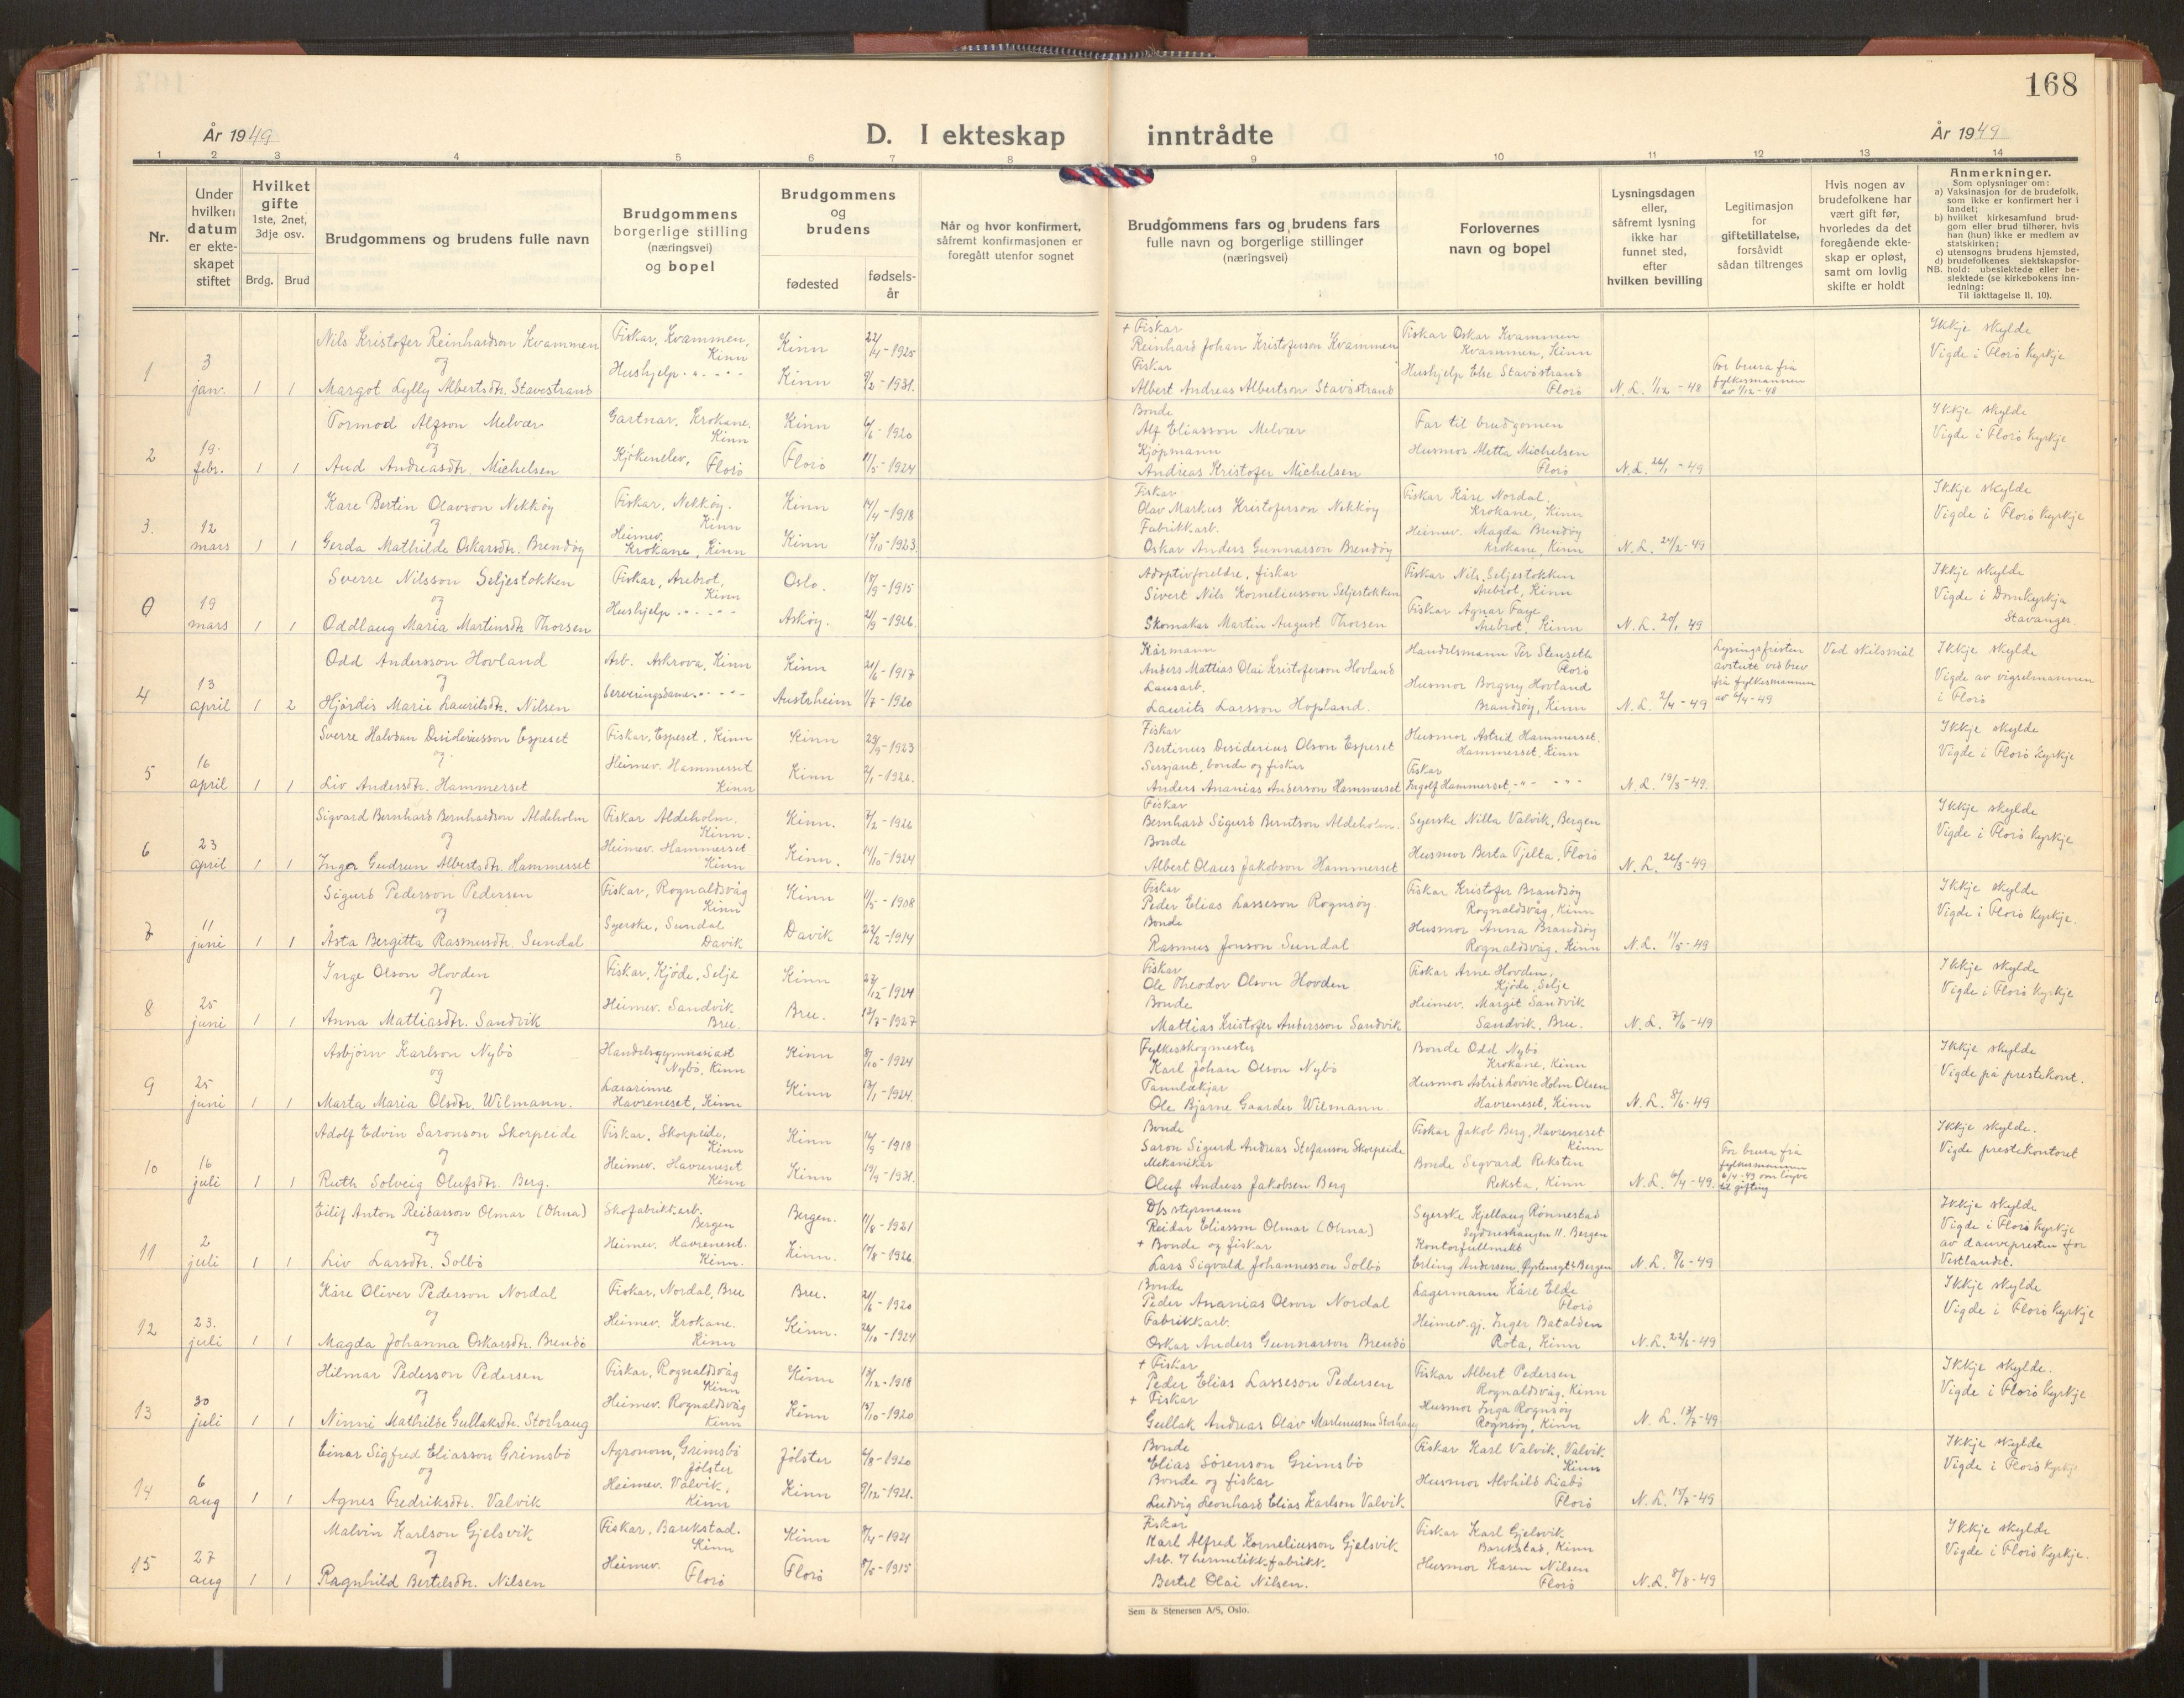 168
År 1949
D. I ekteskap inntrådte
År 1949
1 2 3 4 5 6 7 8 9 10 11 12 13 14
Nr.
Under hvilken datum er ekteskapet stiftet
Hvilket gifte
1ste, 2net, 3dje osv.
Brdg. Brud
Brudgommens og brudens fulle navn
Brudgommens borgerlige stilling (næringsvei) og bopel
Brudgommens og brudens
fødested
fødselsår
Når og hvor konfirmert, såfremt konfirmasjonen er foregått utenfor sognet
Brudgommens fars og brudens fars fulle navn og borgerlige stillinger (næringsvei)
Forlovernes navn og bopel
Lysningsdagen eller, såfremt lysning ikke har funnet sted, efter hvilken bevilling
Legitimasjon for giftetillatelse, forsåvidt sådan tiltrenges
Hvis nogen av brudefolkene har vært gift før, hvorledes da det foregående ekteskap er opløst, samt om lovlig skifte er holdt
Anmerkninger.
Som oplysninger om:
a) Vaksinasjon for de brudefolk, som ikke er konfirmert her i landet;
b) hvilket kirkesamfund brudgom eller brud tilhører, hvis han (hun) ikke er medlem av statskirken;
c) utensogns brudens hjemsted,
d) brudefolkenes slektskapsforhold: ubeslektede eller beslektede (se kirkebokens innledning;
NB. Til iakttagelse ll. 10).
1 3 jan. 1 1
Nils Kristofer Reinhardson Kvammen
og
Margot Lylly Albertsdtr. Stavestrand
Fiskar, Kvammen, Kinn
Hushjelp
Kinn 22/4-1925
Kinn 9/2-1931.
+ Fiskar
Reinhard Johan Kristoferson Kvammen
Fiskar
Albert Andreas Albertson Stavøstrand
Fiskar Oskar Kvammen
Kvammen, Kinn
Hushjelp Else Stavøstrand
Florø
N.L. 1/12-48
For brura frå fylkesmannen av 1/12-48
Ikkje skylde
Vigde i Florø kyrkje
2 19. febr. 1 1
Tormod Alfson Melvær
og
Aud Andreasdtr. Michelsen
Gartnar, Krokane, Kinn
Kjøkenelev, Florø
Kinn 6/6-1920
Florø 11/5-1924
Bonde
Alf Eliasson Melvær
Kjøpmann
Andreas Kristofer Michelsen
Far til brudgomen
Husmor Metta Michelsen
Florø
N.L. 26/1-49
Ikkje skylde
Vigde i Florø kyrkje
3. 12 mars 1 1
Kåre Bertin Olavson Nekkøy
og
Gerda Mathilde Oskarsdtr. Brendøy
Fiskar, Nekkøy, Kinn
Heimev. Krokane, Kinn
Kinn 14/4-1918
Kinn 17/10-1923.
Fiskar
Olav Markus Kristoferson Nekkøy
Fabrikkarb.
Oskar Anders Gunnarson Brendøy
Fiskar Kåre Nordal.
Krokane, Kinn
Heimev. Magda Brendøy
Krokane, Kinn
N.L. 24/2-49
Ikkje skylde
Vigde i Florø kyrkje
0 19 mars 1 1
Sverre Nilsson Seljestokken
og
Oddlaug Maria Martinsdtr Thorsen
Fiskar, Årebrot, Kinn
Hushjelp
Oslo. 18/9-1915
Askøy. 21/9-1926.
Adoptivforeldre, fiskar
Sivert Nils Korneliusson Seljestokken
Skomakar Martin August Thorsen
Fiskar Nils Seljestokken
Årebrot, Kinn
Fiskar Agnar Faye
Årebrot, Kinn
N.L. 20/1 49
Ikkje skylde
Vigde i Domkyrkja
Stavanger.
4 13 april 1 2
Odd Andersson Hovland
og
Hjørdis Marie Lauritsdtr. Nilsen
Arb. Askrova, Kinn
Serveringsdame
Kinn 21/6-1917
Austrheim 1/7-1920
Kårmann
Anders Mattias Olai Kristoferson Hovland
Lausarb.
Laurits Larsson Hopland.
Handelsmann Per Stenseth
Florø
Husmor Borgny Hovland
Brandsøy, Kinn
N.L. 2/4-49
Lysingsfristen avstutt ved brev frå fylkesmannen av 6/4-49
Ved skilsmål
Ikkje skylde
Vigde av vigselmannen
i Florø
5 16 april 1 1
Sverre Halvdan Desideriusson Espeset
og
Liv Andersdtr. Hammerset
Fiskar, Espeset, Kinn
Heimev. Hammerset
Kinn
Kinn 29/9-1923
Kinn 2/1-1926.
Fiskar
Bertinus Desiderius Olson Espeset
Sersjant, bonde og fiskar
Anders Ananias Anderson Hammerset
Husmor Astrid Hammerset.
Hammerset, Kinn
Fiskar
Ingolf Hammerset
N.L. 19/3-49.
Ikkje skylde
Vigde i Florø kyrkje
6 23 april 1 1
Sigvard Bernhard Bernhardson Aldeholm
og
Inga Gudrun Albertsdtr. Hammerset
Fiskar Aldeholm, Kinn.
Heimev. Hammerset Kinn
Kinn. 7/2-1926
Kinn. 14/10-1924
Fiskar
Bernhard Sigurd Berntson Aldeholm.
Bonde
Albert Olaus Jakobson Hammerset
Syerske Nilla Valvik, Bergen
Husmor Berta Tjelta, Florø
N.L. 26/3-49
Ikkje skylde
Vigde i Florø kyrkje
7 11 juni 1 1
Sigurd Pederson Pedersen
og
Åsta Bergitta Rasmusdtr. Sundal
Fiskar, Rognaldsvåg Kinn
Syerske, Sundal Davik
Kinn 11/5-1908
Davik 22/2-1914
Fiskar
Peder Elias Lasseson Rognsøy.
Bonde
Rasmus Jonson Sundal
Fiskar Kristofer Brandsøy
Rognaldsvåg, Kinn
Husmor Anna Brandsøy
Rognaldsvåg, Kinn
N.L. 11/5-49
Ikkje skylde
Vigde i Florø kyrkje.
8 25 juni 1 1
Inge Olson Hovden
og
Anna Mattiasdtr. Sandvik
Fiskar, Kjøde, Selje
Heimev. Sandvik Bru.
Kinn 27/12-1924
Bru. 17/7-1927
Fiskar
Ole Theodor Olson Hovden
Bonde
Mattias Kristofer Andersson Sandvik
Fiskar Arne Hovden,
Kjøde, Selje
Heimev. Margit Sandvik
Sandvik, Bru.
N.L. 7/6-49
Ikkje skylde
Vigde i Florø kyrkje
9 25 juni 1 1
Asbjørn Karlson Nybø
og
Marta Maria Olsdtr. Wilmann.
Handelsgymnasiast
Nybø, Kinn
Lærarinne
Havreneset, Kinn
Kinn 8/10-1924
Kinn 13/1-1924.
Fylkesskogmester
Karl Johan Olson Nybø
Tannlækjar
Ole Bjarne Gaarder Wilmann.
Bonde Odd Nybø
Krokane, Kinn
Husmor Astrid Lovise Holm Olsen
Havreneset, Kinn
N.L. 8/6-49
Ikkje skylde
Vigde på prestekont.
10 16 juli 1 1
Adolf Edvin Saronson Skorpeide
og
Ruth Solveig Olufsdtr. Berg.
Fiskar, Skorpeide, Kinn
Heimev. Havreneset Kinn
Kinn 14/9-1918
Kinn 19/9-1931.
Bonde
Saron Sigurd Andreas Stefanson Skorpeide
Mekanikar
Oluf Andreas Jakobsen Berg
Fiskar Jakob Berg, Havreneset
Kinn
Bonde Segvard Reksten
Reksta, Kinn
N.L. 6/4-49.
For brura frå fylkesmannen 6/4-49 om løyve til gifting
Ikkje skylde.
Vigde prestekontoret
11 2 juli 1 1
Eilif Anton Reidarson Olmar (Ohna)
og
Liv Larsdtr. Solbø
Skofabrikkarb. Bergen
Heimev. Havreneset. Kinn.
Bergen. 11/8-1921
Kinn. 17/8-1926
D/s styrmann
Reidar Eliasson Olmar (Ohna)
+ Bonde og fiskar
Lars Sigvald Johannesson Solbø
Syerske Kjellaug Rønnestad
Sydneshaugen 11. Bergen
Kontorfullmekt.
Erling Andersen, Bergen
N.L. 8/6-49
Ikkje skylde
Vigde i Florø kyrkje
av dauvepresten for
Vestlandet.
12 23. juli 1 1
Kåre Oliver Pederson Nordal
og
Magda Johanna Oskarsdtr. Brendø
Fiskar, Nordal, Bru
Heimev. Krokane. Kinn
Bru. 21/6-1920
Kinn. 26/10-1924
Bonde
Peder Ananias Olson Nordal
Fabrikkarb.
Oskar Anders Gunnarson Brendø
Lagermann Kåre Elde
Florø
Heimev.gj. Inger Batalden
Rota, Kinn
N.L. 22/6-49
Ikkje skylde
Vigde i Florø kyrkje
13 30 juli 1 1
Hilmar Pederson Pedersen
og
Ninni Mathilde Gullaksdtr. Storhaug
Fiskar, Rognaldsvåg Kinn
Heimev. Rognaldsvåg Kinn
Kinn 18/12-1918
Kinn 15/10-1920
+ Fiskar
Peder Elias Lasseson Pedersen
+ Fiskar
Gullak Andreas Olav Martinusson Storhaug
Fiskar Albert Pedersen
Rognaldsvåg, Kinn
Husmor Inga Rognsøy
Rognsøy, Kinn
N.L. 13/7-49
Ikkje skylde.
Vigde i Florø kyrkje
14 6 aug 1 1
Einar Sigfred Eliasson Grimsbø
og
Agnes Fredriksdtr. Valvik
Agronom, Grimsbø Jølster
Heimev. Valvik, Kinn
Jølster 6/8-1920
Kinn 9/12-1921.
Bonde
Elias Sørenson Grimsbø
Bonde og fiskar
Ludvig Leonhard Elias Karlson Valvik
Fiskar Karl Valvik, Valvik
Kinn
Husmor Alvhild Liabø
Florø
N.L. 15/7-49
Ikkje skylde
Vigde i Florø kyrkje
15 27 aug 1 1
Malvin Karlson Gjelsvik
og
Ragnhild Bertilsdtr. Nilsen
Fiskar, Barekstad. Kinn
Heimev. Florø
Kinn 8/4-1921
Florø 8/5-1915
Fiskar
Karl Alfred Korneliusson Gjelsvik
Arb. i hermetikkfabrikk.
Bertil Olai Nilsen.
Fiskar Karl Gjelsvik
Barekstad, Kinn
Husmor Karen Nilsen
Florø
N.L. 8/8-49
Ikkje skylde
Vigde i Florø kyrkje.
Sem & Stenersen A/S, Oslo.